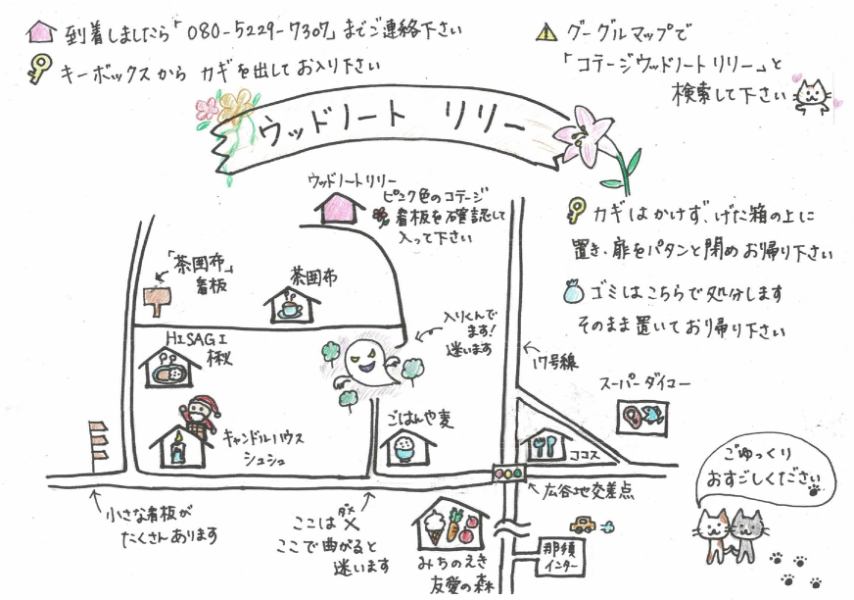 到着しましたら「080-5229-7307」までご連絡下さい
キーボックスから カギを出してお入り下さい
グーグルマップで
「コテージウッドノートリリー」と
検索して下さい
ウッドノート リリー
ウッドノートリリー
ピンク色のコテージ
看板を確認して
入って下さい
カギはかけず、げた箱の上に
置き、扉をパタンと閉めお帰り下さい
ゴミはこちらで処分します
そのまま置いてお帰り下さい
「茶囲布」
看板
茶囲布
入りくんで
ます!
迷います
17号線
HISAGI
楸
スーパーダイユー
キャンドルハウス
シュシュ
ごはんや麦
ココス
広谷地交差点
小さな看板が
たくさんあります
ここは✕
ダメ
ここで曲がると
迷います
みちのえき
友愛の森
那須
インター
ごゆっくり
おすごしください